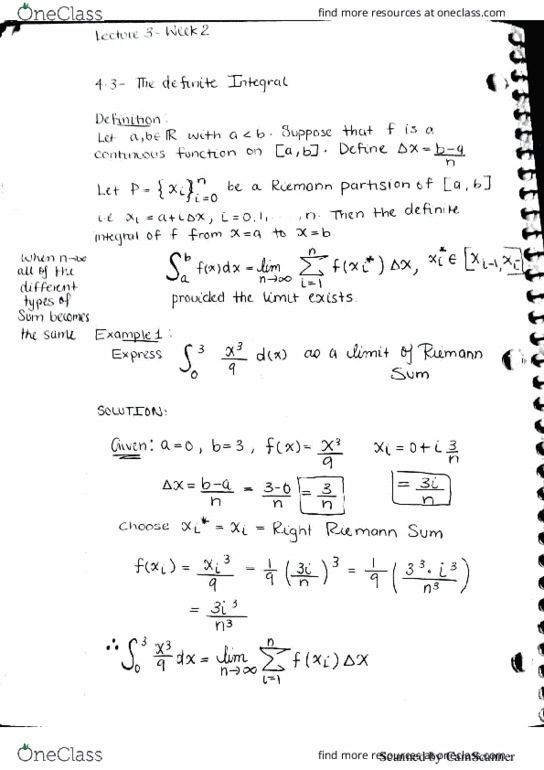 OneClass
find more resources at oneclass.com
Lecture 3 - Week 2
4.3 - The definite Integral
Definition:
Let a,b∈ℝ with a<b. Suppose that f is a
continuous function on [a,b]. Define Δx = (b-a)/n
Let P = {x_i}_{i=0}^{n} be a Riemann partision of [a,b]
i.e x_i = a+iΔx, i=0,1,...,n. Then the definite
integral of f from x=a to x=b.
∫_a^b f(x)dx = lim_{n→∞} ∑_{i=1}^{n} f(x_i*) Δx, x_i* ∈ [x_{i-1}, x_i]
provided the limit exists.
when n→∞
all of the
different
types of
Sum becomes
the same
Example 1:
Express ∫_0^3 x³/9 d(x) as a limit of Riemann
Sum
SOLUTION:
Given: a=0, b=3, f(x) = x³/9 x_i = 0 + i 3/n
Δx = (b-a)/n = (3-0)/n = 3/n = 3i/n
choose x_i* = x_i = Right Riemann Sum
f(x_i) = x_i³/9 = 1/9 (3i/n)³ = 1/9 (3³·i³/n³)
= 3i³/n³
∴ ∫_0^3 x³/9 dx = lim_{n→∞} ∑_{i=1}^{n} f(x_i) Δx
OneClass
find more resources at oneclass.com
Scanned by CamScanner